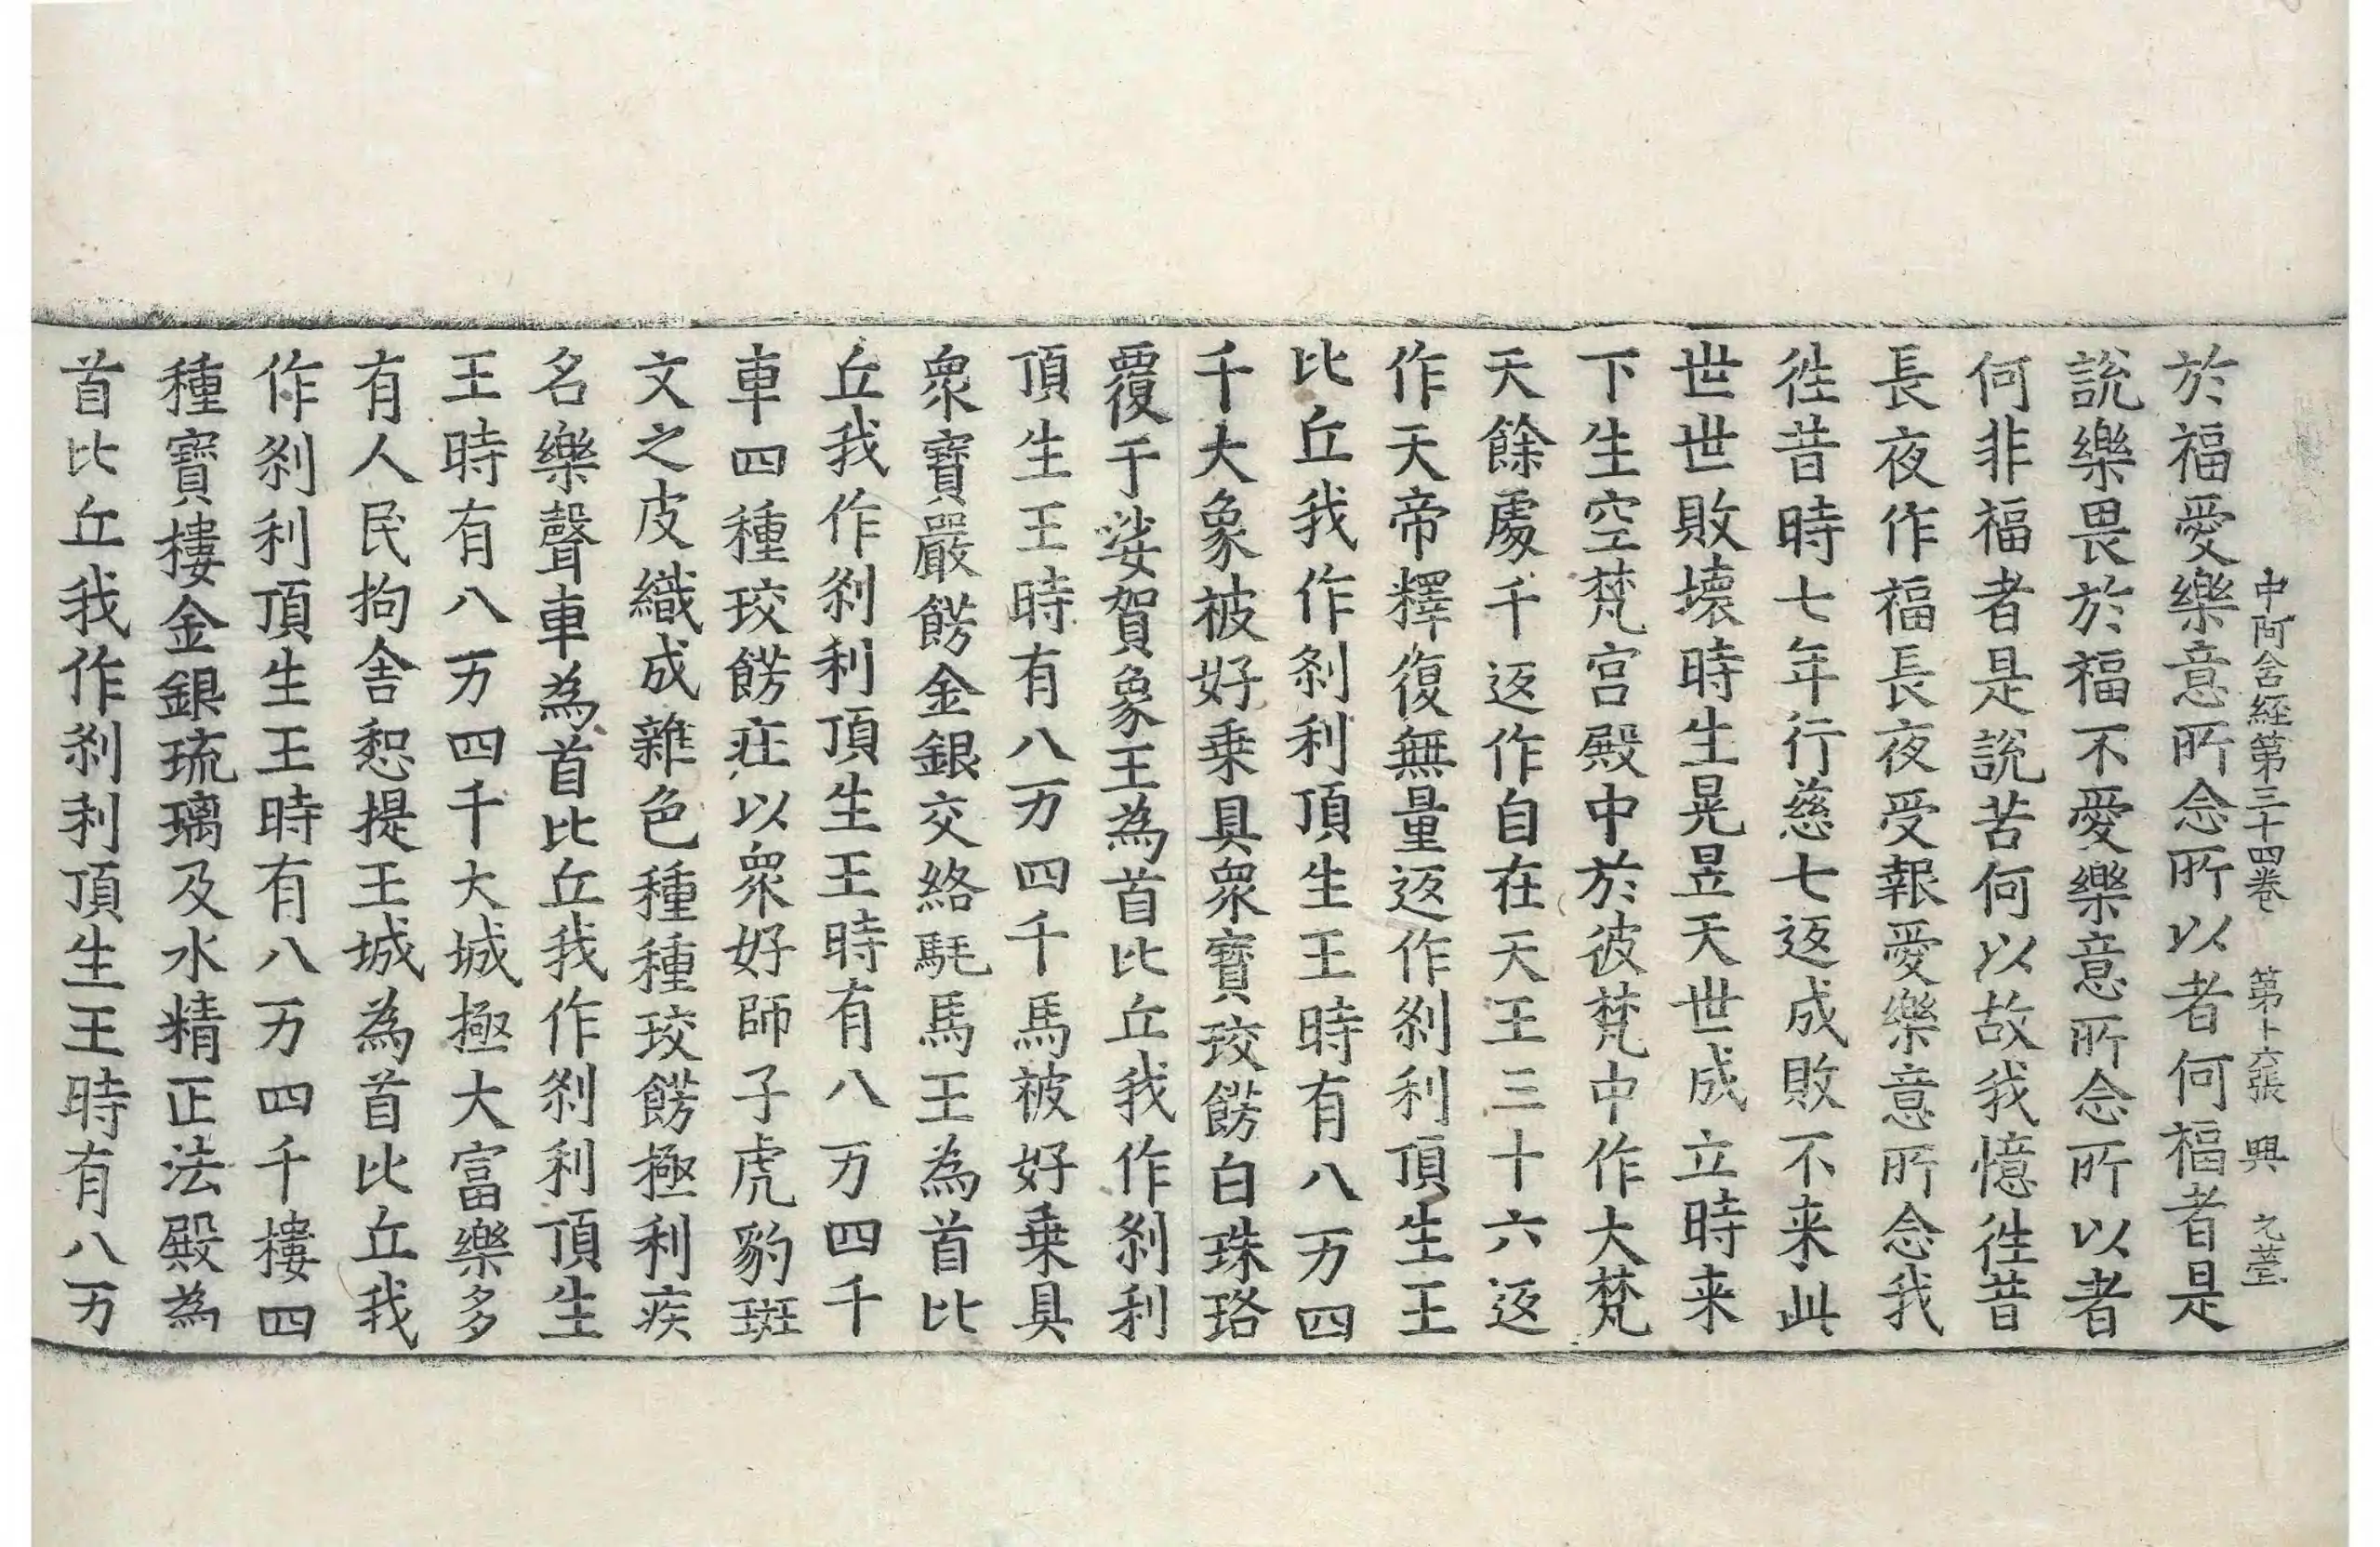 中阿含経第三十四巻 第十六張 興
於福愛樂意所念所以者何福者是
說樂畏於福不愛樂意所念所以者
何非福者是說苦何以故我憶徃昔
長夜作福長夜受報愛樂意所念我
徃昔時七年行慈七返成敗不来此
世世敗壞時生晃昱天世成立時来
下生空梵宮殿中於彼梵中作大梵
天餘處千返作自在天王三十六返
作天帝釋復無量返作剎利頂生王
比丘我作剎利頂生王時有八万四
千大象被好乗具衆寶珓餝白珠珞
覆于娑賀象王為首比丘我作剎利
頂生王時有八万四千馬被好乗具
衆寶嚴餝金銀交絡馲馬王為首比
丘我作剎利頂生王時有八万四千
車四種珓餝莊以衆好師子虎豹斑
文之皮織成雜色種種珓餝極利疾
名樂聲車為首比丘我作剎利頂生
王時有八万四千大城極大富樂多
有人民拘舍惒提王城為首比丘我
作剎利頂生王時有八万四千樓四
種寶樓金銀琉璃及水精正法殿為
首比丘我作剎利頂生王時有八万